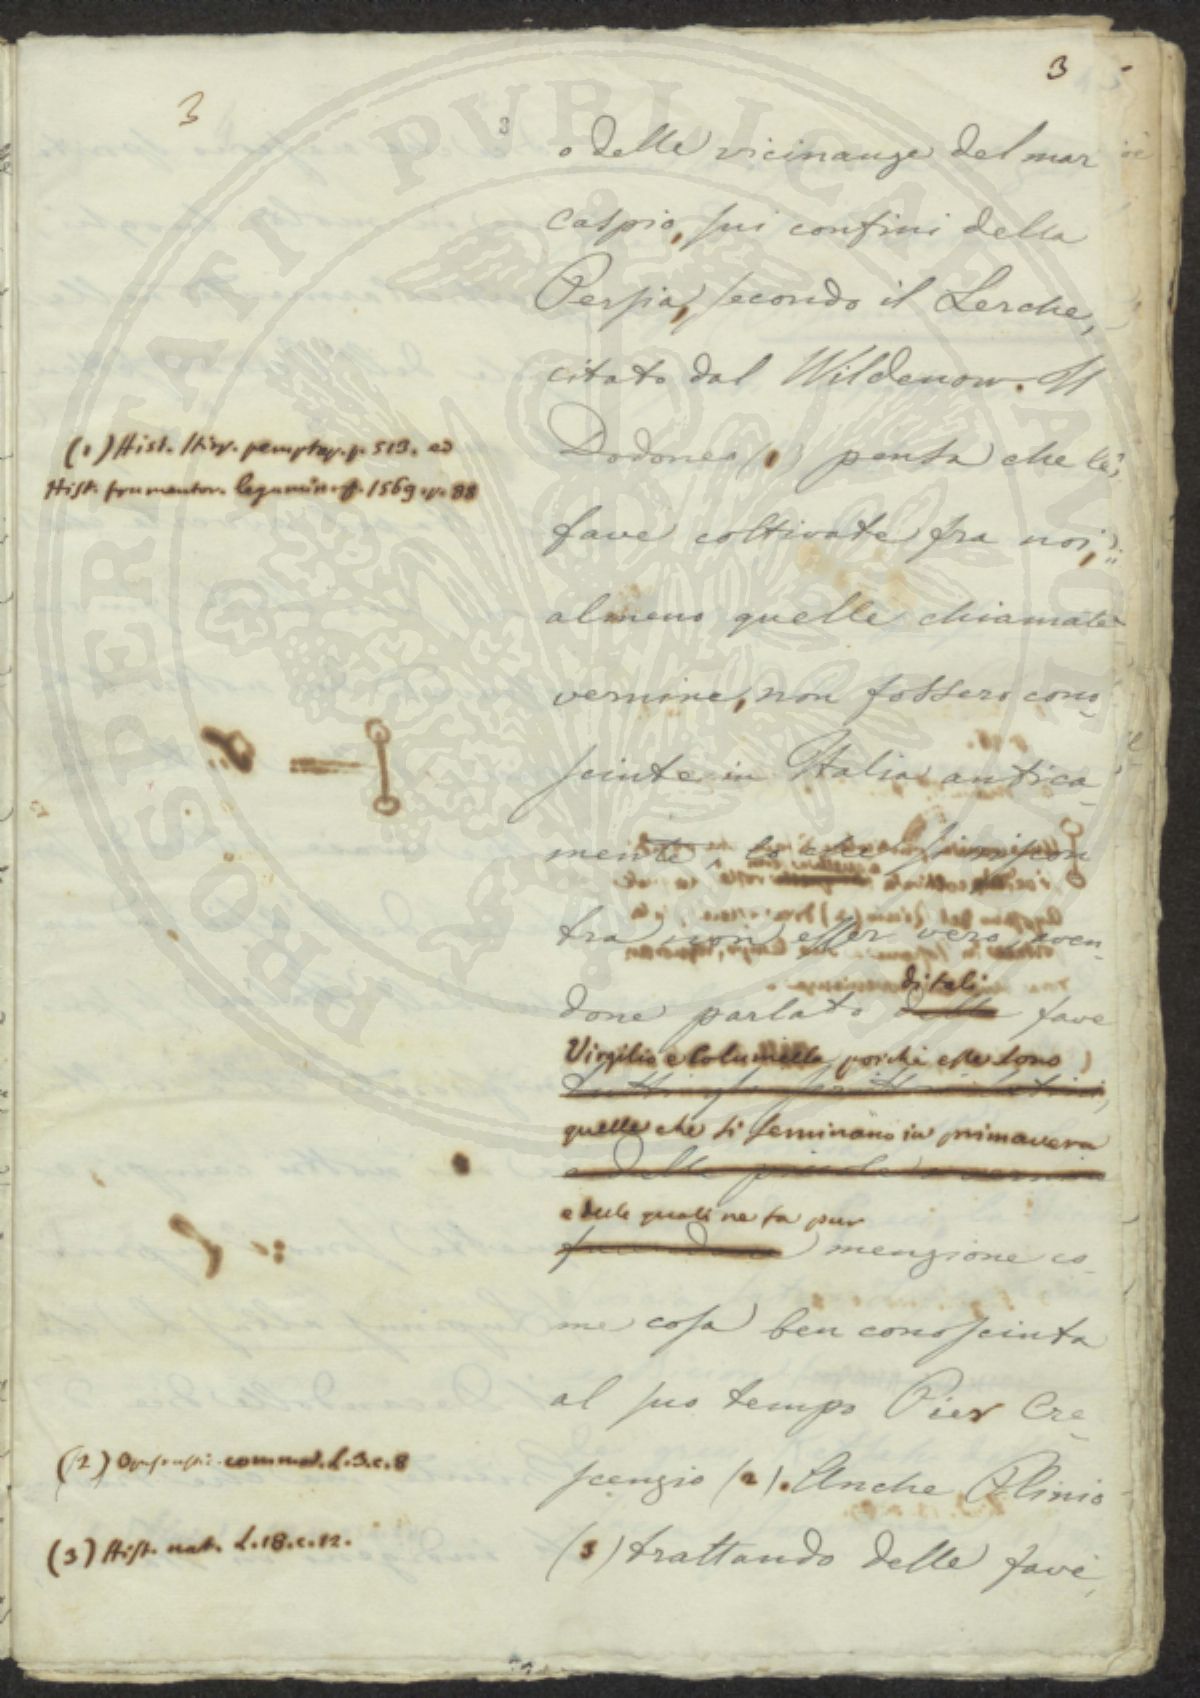 3
3
3
o delle vicinanze del mar
caspio, sui confini della
Persia, secondo il Lerche,
citato dal Wildenow. Il
Dodoneo (1) pensa che le
fave coltivate fra noi,
almeno quelle chiamate
vernine, non fossero cono-
sciute in Italia antica-
mente, lo che si riscon
tra non esser vero, aven-
di tali
done parlato delle fave
Virgilio e Columella, poichè esse sono
tutti gli scrittori latini,
quelle che si seminano in primavera
e delle piccole o vernine
e delle quali ne fa pur
menzione co-
me cosa ben conosciuta
al suo tempo Pier Cre-
scenzio (2). Anche Plinio
(3) trattando delle fave,
(1) Hist. stirp. pemptap. p. 513. ed
Hist. frumentor. legumin. 1569. p. 88
(2) commod. L. 3. c. 8
(3) Hist. nat. L. 18. c. 12.
PROSPERITATI PVBLICAE AVGENDAE